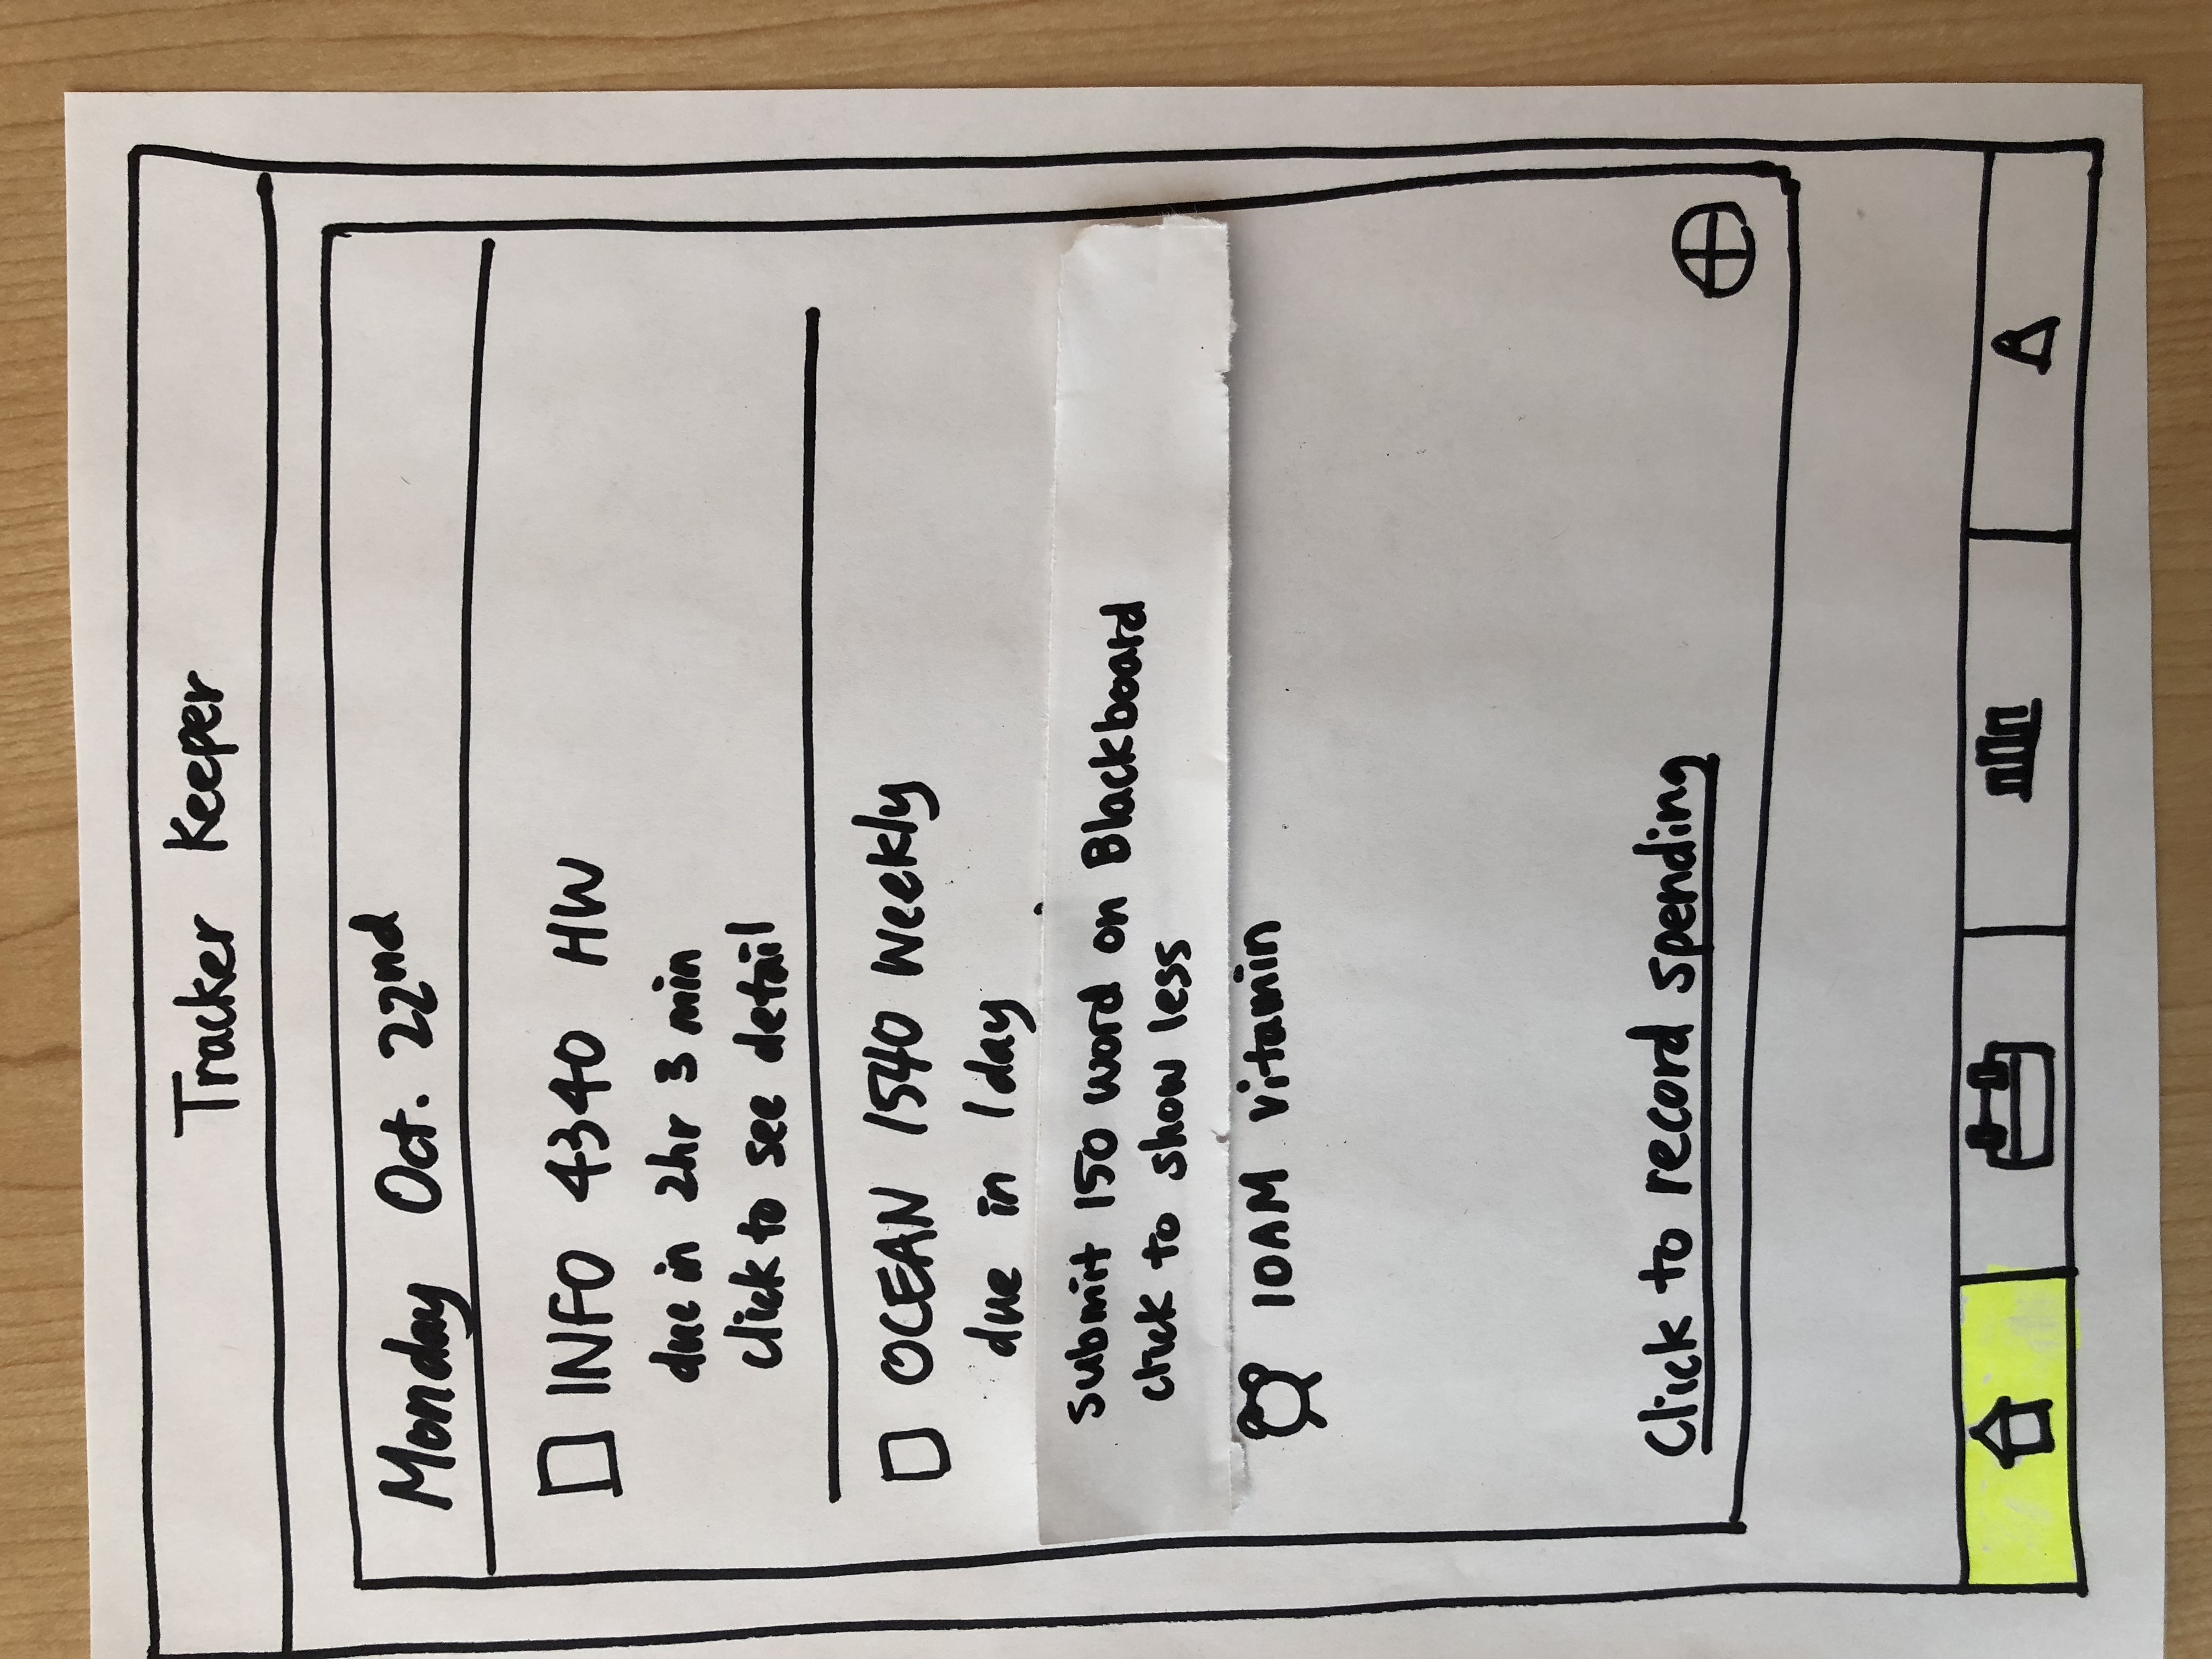 Tracker Keeper
Monday Oct. 22nd
INFO 4340 HW
due in 2hr 3 min
click to see detail
OCEAN 1540 Weekly
due in 1 day
submit 150 word on Blackboard
click to show less
10AM vitamin
Click to record spending